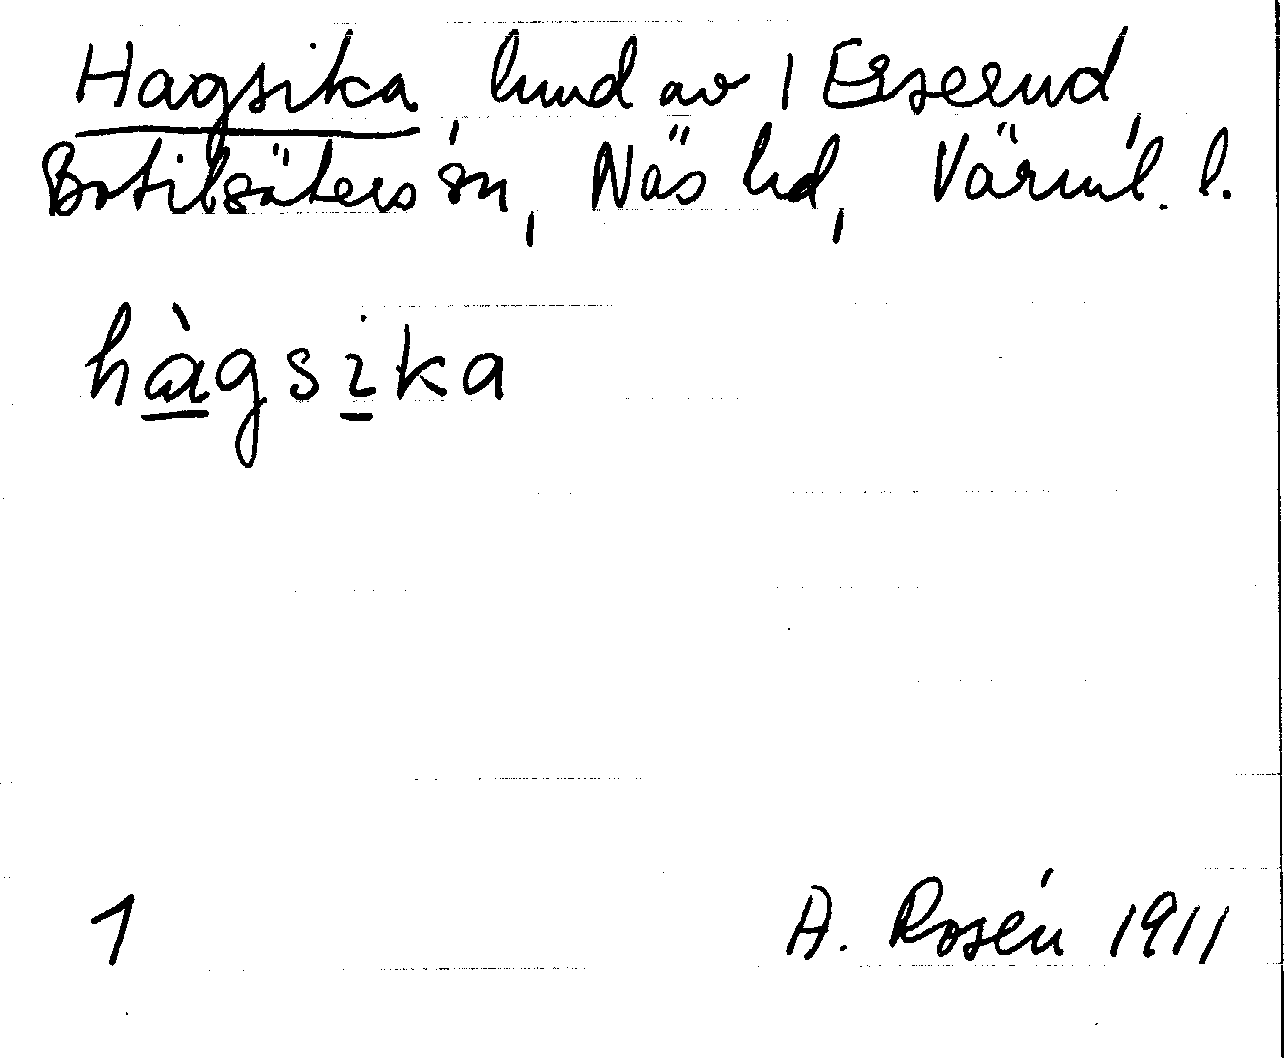 Hagsika, hmd av 1 Erserud,
Botilsäters sn, Näs hd, Värml. l.
hàgsika
1
A. Rosén 1911